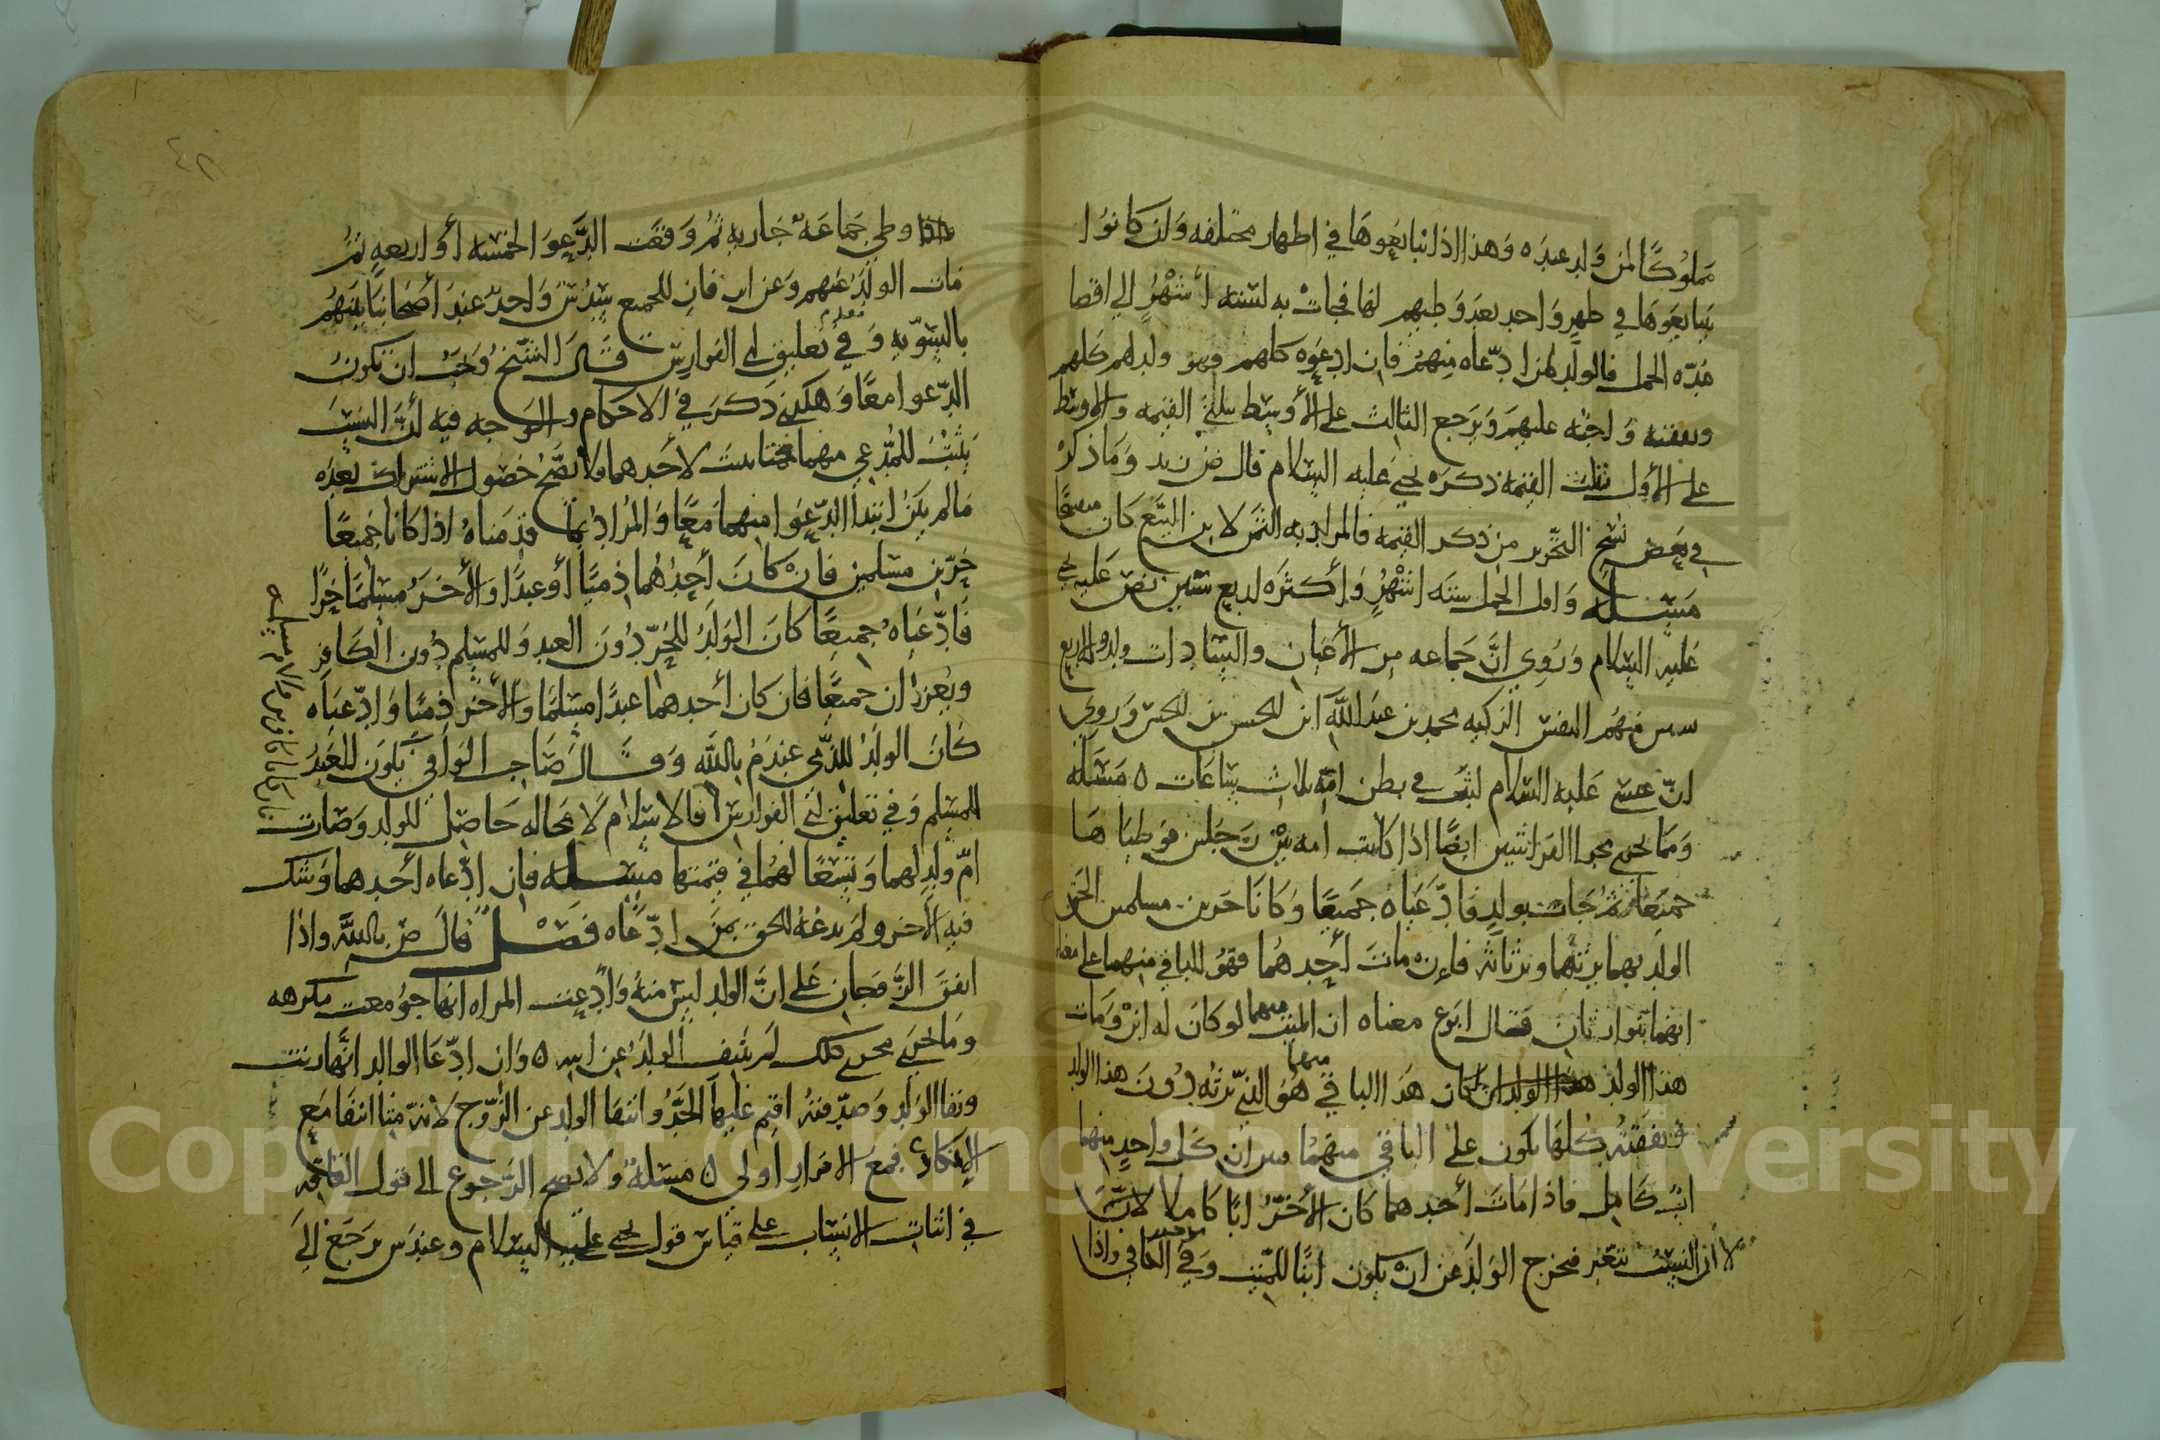 مملوكًا لمن ولد عنده وهذا اذا تبايعوها في اطهار مختلفه وان كانوا
تبايعوها في طهر واحد بعد وطيهم لها فجات به لستة أشهر الي اقصا
مدّه الحمل فالولد لمن ادّعاه منهم فان ادعوه كلهم فهو ولدهم كلهم
ونفقته واجبه عليهم ويرجع الثالث على الأوسط بثلثي القيمه والاوسط
على الأول بثلث القيمه ذكره يحيى عليه السلام قال ض زيد وما ذكر
في بعض نسخ التحرير من ذكر القيمه فالمراد به الثمن لان البيع كان
مسئلة واقل الحمل ستة اشهر وأكثره اربع سنين نص عليه يحيى
عليه السلام وروي انّ جماعه من الأعيان والسادات ولدوا لاربع
سنين منهم النفس الزكيه محمد بن عبد الله ابن الحسن بن الحسن وروي
انّ عيسى عليه السلام لبث في بطن امّه ثلاث ساعات ٥ مسئلة
ومما يجري مجرا الفراشين ايضًا اذا كانت امه بين رجلين فوطياها
جميعًا ثم جات بولد فادّعياه جميعًا وكانا حرين مسلمين الحق
الولد بهما يرثهما ويرثانه فإن مات أحدهما فهو للباقي منهما على معنا
انهما يتوارثان فقال ابوع معناه ان الميت منهما لو كان له ابن ومات
هذا الولد كان هذا الباقي منهما هو الذي يرثه دون هذا الولد
ونفقته كلها تكون على الباقي منهما من ان كل واحد منهما
اب كامل فاذا مات أحدهما كان الأخرُ ابًا كاملا
لا أن النسب يتغير فيخرج الولد عن ان يكون ابنًا للميت وفي الكافي واذا
٤٨
واذا وطي جماعه جاريه ثم وقعت الدعوا لخمسه أو اربعه ثم
مات الولد عنهم وعن اب فان للجميع سدس واحد عند أصحابنا بينهم
بالسّويه وفي تعليق ابي الفوارس قال الشيخ وجب ان تكون
الدّعوا معًا وهكذي ذكر في الاحكام والوجه فيه أن النسب
يثبت للمدعي منهما فمتا ثبت لأحدهما فلا يصح حصول الاشتراك بعده
مالم يكن ابتدا الدّعوا منهما معًا والمراد بما قدمناه اذا كانا جميعًا
حرّين مسلمين فان كان أحدهما ذميًا أو عبدًا والأخر مسلمًا حرًا
فادّعياه جميعًا كان الولد للحرّ دون العبد وللمسلم دون الكافر
ويعزران جميعًا فان كان أحدهما عبدًا مسلمًا والأخر ذميًا وادّعياه
كان الولد للذّمي عند م بالله وقال صاحب الوافي يكون للعبد
المسلم وفي تعليق ابي الفوارس فالاسلام لا محاله حاصل للولد وصارت
امّ ولد لهما وتسعًا لهما في قيمتها مسئله فان ادّعاه أحدهما وشك
فيه الأخر ولم يدعه لحق بمن ادّعاه فصل قال ض بالله واذا
اتفق الزوجان على انّ الولد ليس منه وادعت المراه انها جومعت مكرهه
وما يجري مجرى ذلك لم ينتف الولد عن ابيه ٥ وان ادّعا الوالد انّها زنت
ونفا الولد وصدّقته اقيم عليها الحدّ وانتفا الولد عن الزّوج لانه متا انتفا مع
الإنكار فمع الاقرار أولى ٥ مسئلة ولا يصح الرّجوع الى قول القافه
في اثبات الانساب على قياس قول يحيى عليه السلام وعند ش يرجع إلى